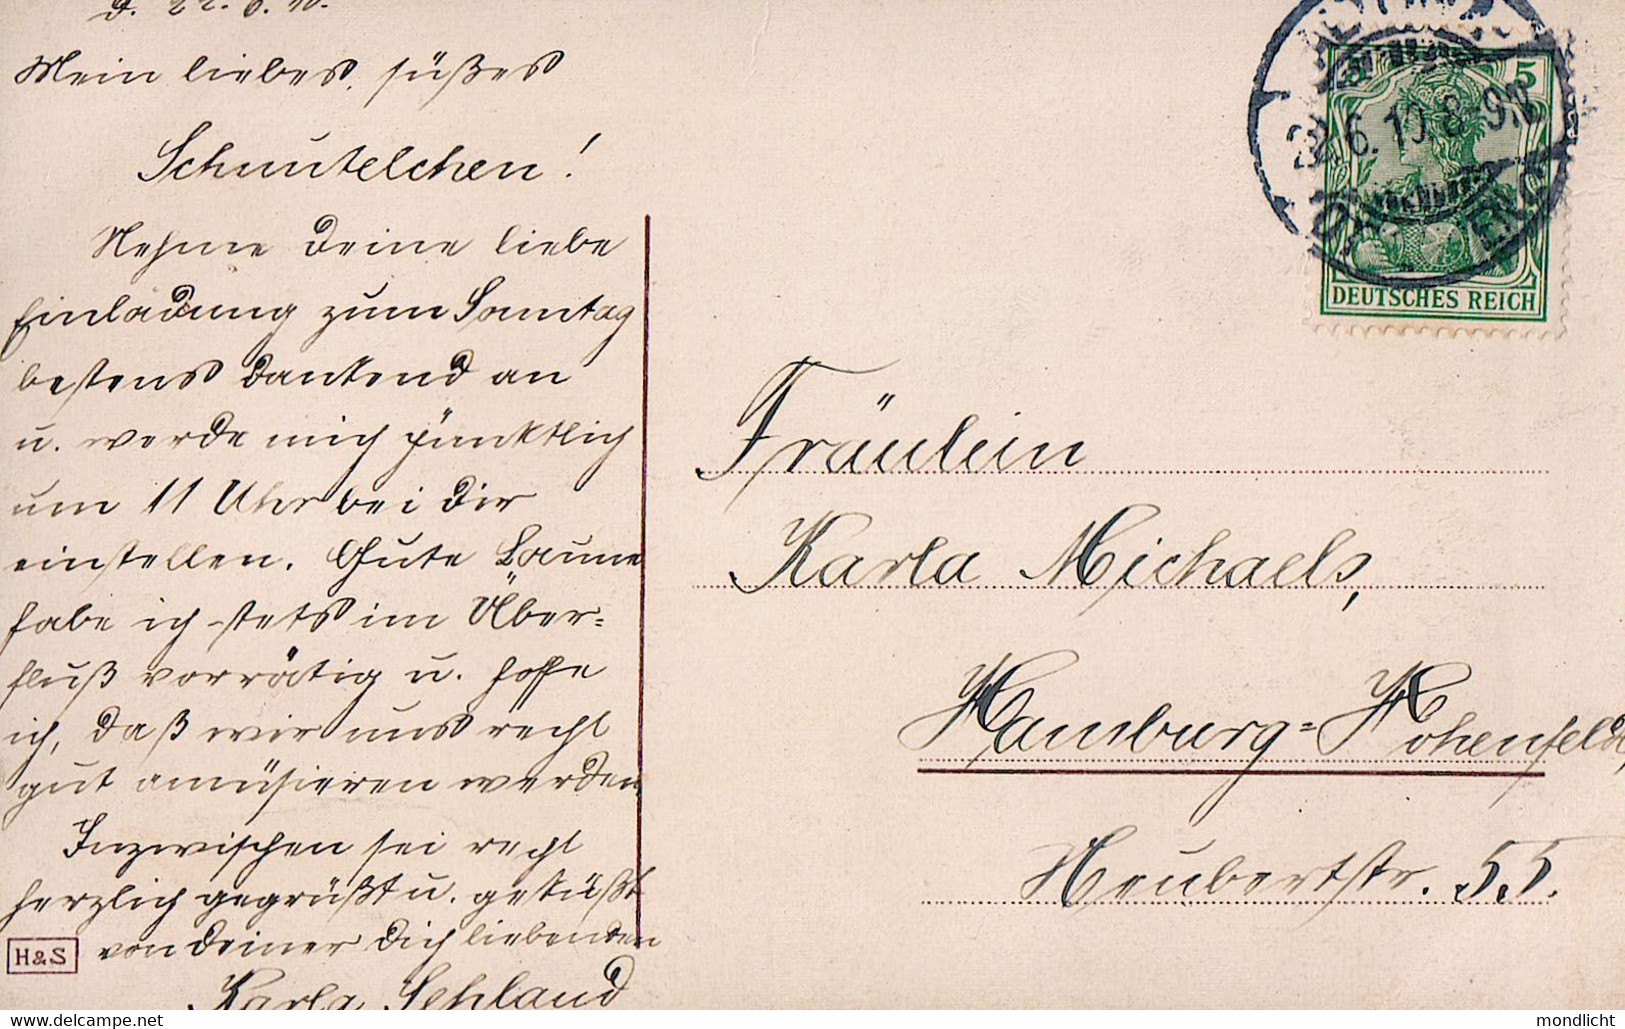 d. 22. 6. 10.
Mein liebes, süßes
Schnutelchen!
Nehme Deine liebe
Einladung zum Sonntag
bestens dankend an
u. werde mich pünktlich
um 11 Uhr bei Dir
einstellen. Gute Laune
habe ich stets im Über=
fluß vorrätig u. hoffe
ich, daß wir uns recht
gut amüsieren werden
Inzwischen sei recht
herzlich gegrüßt u. geküßt
von Deiner Dich liebenden
Karla Sehland
H&S
22.6.10.8-9N
5
DEUTSCHES REICH
Fräulein
Karla Michaels,
Hamburg=Hohenfelde,
Neubertstr. 55.
mondlicht